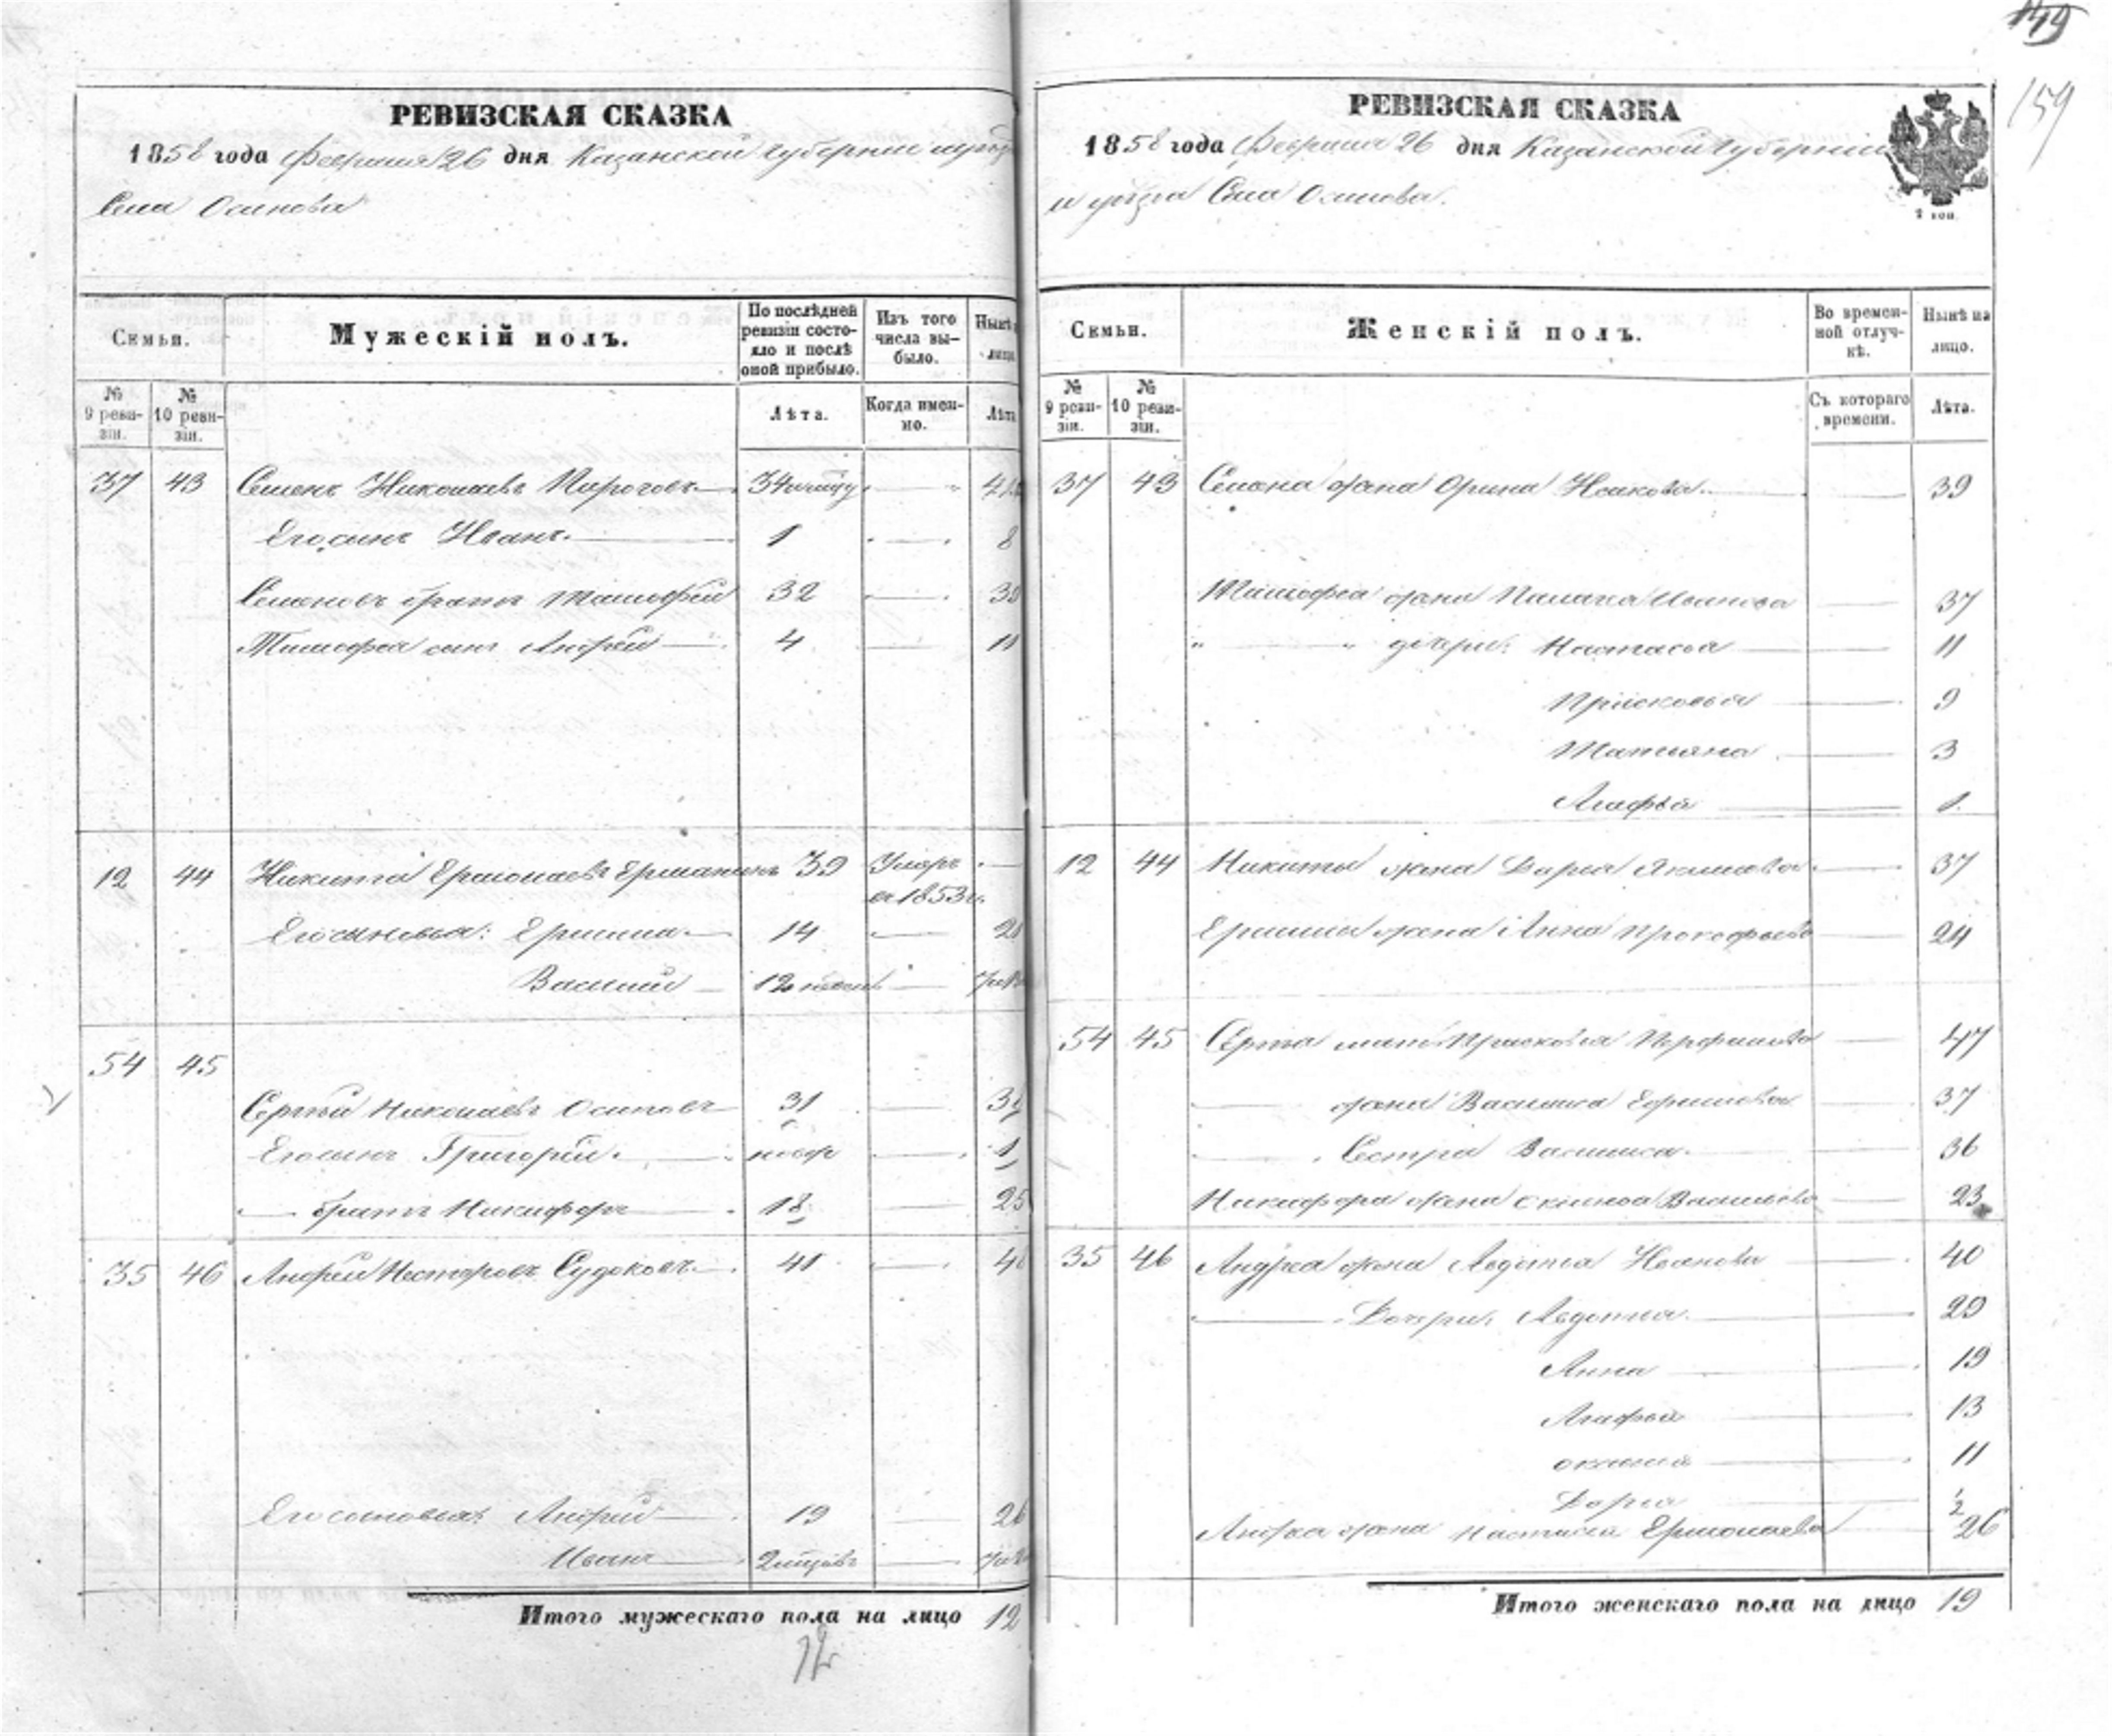 149
159
РЕВИЗСКАЯ СКАЗКА
1858 года Февраля 26 дня Казанской губернии и уезда
Села Осинова
Семьи.
Мужескій полъ.
По послѣдней ревизіи состо-
яло и послѣ оной прибыло.
Изъ того числа вы-
было.
Нынѣ
лицо
№ 9 реви-
зіи.
№ 10 реви-
зіи.
Лѣта.
Когда имен-
но.
Лѣта
37 43 Семенъ Николаевъ Пироговъ 34
Его сынъ Иванъ. 1 8
Семеновъ братъ Тимофей 32
Тимофея сынъ Андрей 4 11
12 44 Никита Ермолаевъ 39 Умеръ
въ 1853 г.
Его сыновья: Ермила 14
Василий 12
54 45
Сергѣй Николаевъ Осиповъ 31
Его сынъ Григорій 1
братъ Никифоръ 18 25
35 46 Андрей Нестеровъ Судоковъ 41
Его сыновья: Андрей 19 26
Иванъ
Итого мужескаго пола на лицо 12
12
РЕВИЗСКАЯ СКАЗКА
1858 года Февраля 26 дня Казанской Губерніи
и уѣзда Села Осинова.
2 коп.
Семьи.
Женскій полъ.
Во времен-
ной отлуч-
кѣ.
Нынѣ на
лицо.
№ 9 реви-
зіи.
№ 10 реви-
зіи.
Съ котораго
времени.
Лѣта.
37 43 Семена жена Орина Исакова 39
Тимофея жена Палагея Иванова 37
дочери: Настасья 11
Присковья 9
Татьяна 3
Агафья 1
12 44 Никиты жена Дарья Якимова 37
Ермилы жена Анна Прокофьева 24
54 45 Сергѣя мать Присковья 47
жена Василиса Ефимова 37
Сестра Василиса 36
Никифора жена Васильева 23
35 46 Андрея жена Авдотья Иванова 40
Дочери: Авдотья 20
Анна 19
Агафья 13
11
Дарья 1/2
Андрея жена Настасья Ермолаева 26
Итого женскаго пола на лицо 19